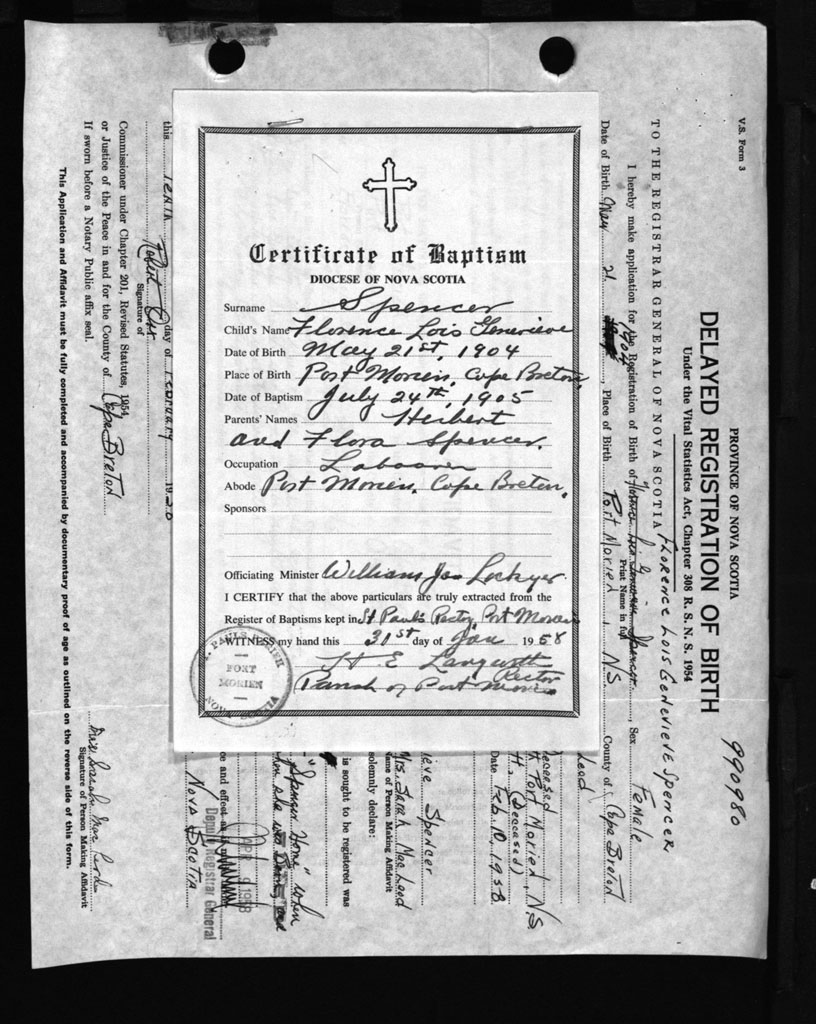 Certificate of Baptism
DIOCESE OF NOVA SCOTIA
Surname Spencer
Child's Name Florence Lois Genevieve
Date of Birth May 21st, 1904
Place of Birth Port Morien, Cape Breton,
Date of Baptism July 24th, 1905
Parents' Names Herbert
and Flora Spencer.
Occupation
Abode Port Morien, Cape Breton,
Sponsors
Officiating Minister William Lockyer
I CERTIFY that the above particulars are truly extracted from the
Register of Baptisms kept in St Paul's Port Morien
WITNESS my hand this 31st day of Jan 1958
H E
Rector
Parish of Port Morien
PORT
MORIEN
V.S. Form 3
PROVINCE OF NOVA SCOTIA
990980
DELAYED REGISTRATION OF BIRTH
Under the Vital Statistics Act, Chapter 308 R. S. N. S. 1954
TO THE REGISTRAR GENERAL OF NOVA SCOTIA
FLORENCE LOIS GENEVIEVE SPENCER
I hereby make application for the Registration of Birth of Spencer, Sex Female
Print Name in full
1904
Date of Birth May 21, Place of Birth Port Morien, N.S. County of Cape Breton
Leod
Deceased
Port Morien, NS
H. (Deceased)
Date Feb. 10, 1958
ieve Spencer
Mrs. Sarah MacLeod
Name of Person Making Affidavit
solemnly declare:
is sought to be registered was
"Spencer Home" when
when she was Born, and
ce and effect
APR 9 1958
Deputy Registrar General
Nova Scotia
this TENTH day of February 19
Robert
Signature of
Commissioner under Chapter 201, Revised Statutes, 1954
or Justice of the Peace in and for the County of Cape Breton
If sworn before a Notary Public affix seal.
Signature of Person Making Affidavit
This Application and Affidavit must be fully completed and accompanied by documentary proof of age as outlined on the reverse side of this form.